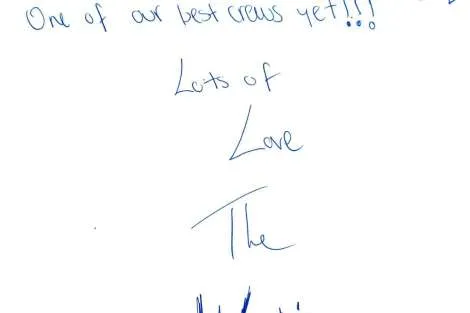 One of our best crews yet!!!
Lots of
Love
The